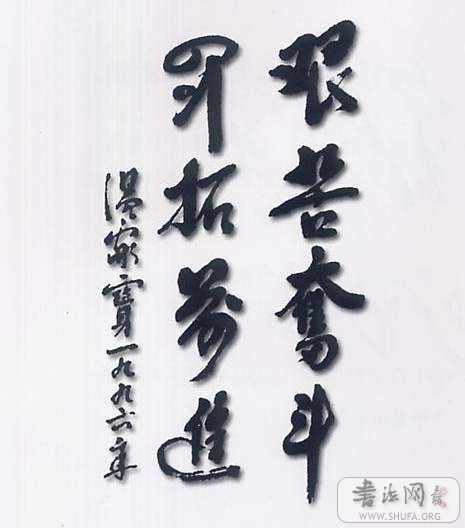 艰苦奋斗
开拓前進
温家寳一九九六年
书法网
WWW.SHUFA.ORG